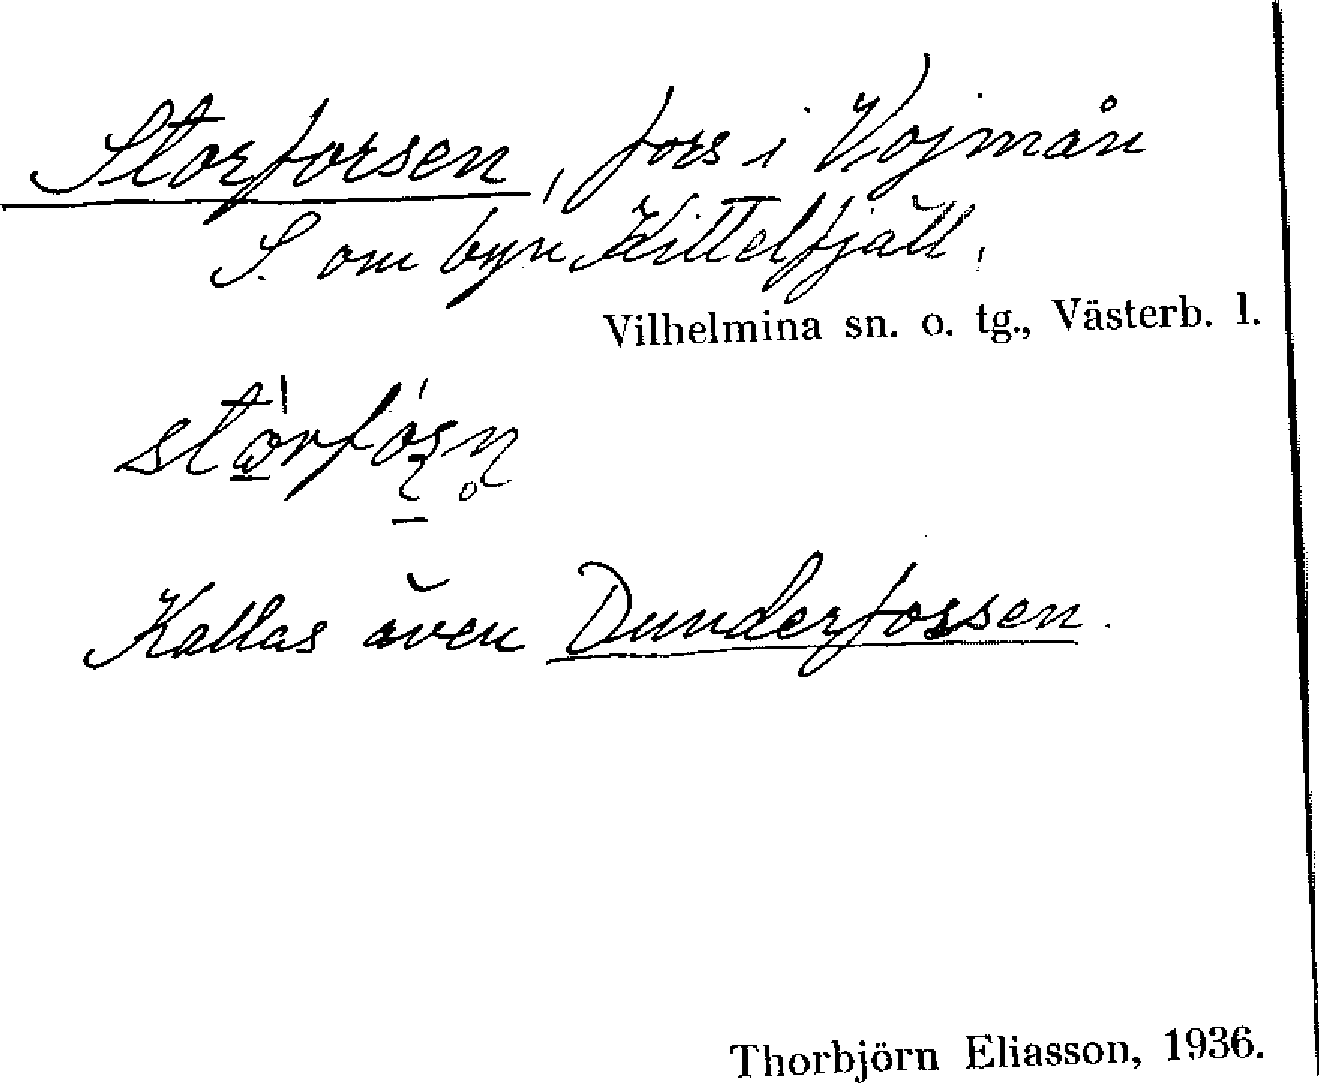 Storforsen, fors i Vojmån
S. om byn Kittelfjäll,
Vilhelmina sn. o. tg., Västerb. l.
Kallas även Dunderfossen.
Thorbjörn Eliasson, 1936.